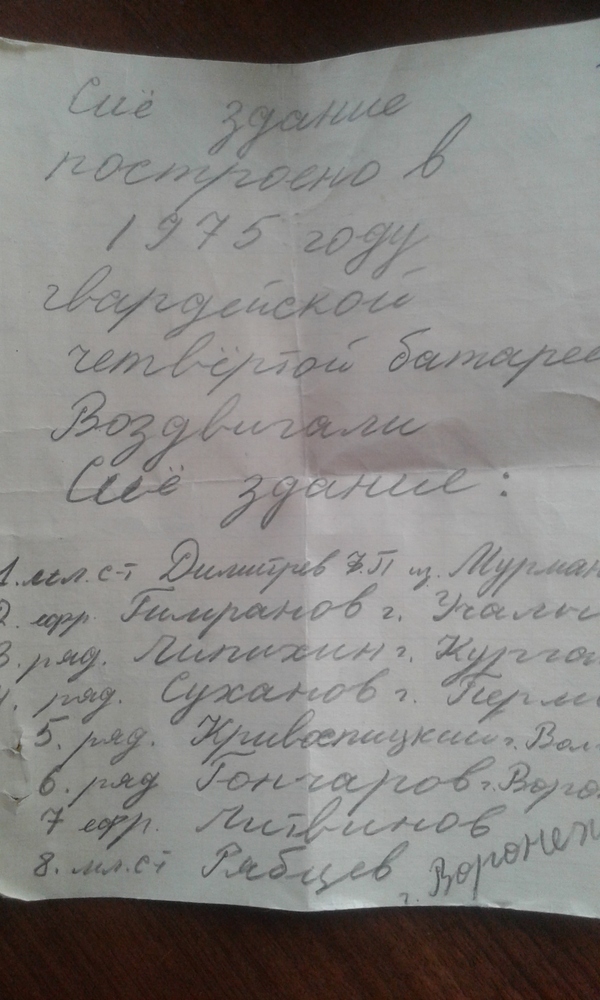 Сиё здание
построено в
1975 году
гвардейской
четвёртой батарее
Воздвигали
Сиё здание:
1. мл. с-т Димитрев из. Мурман
2. ефр. Гимранов г. Учалы
3. ряд. Липихин г. Курга
4. ряд. Суханов г. Перм
5. ряд. Кривоспицкий г. Вол
6. ряд Гончаров г. Воро
7 ефр. Литвинов
8. мл. ст Рябцев г. Воронеж